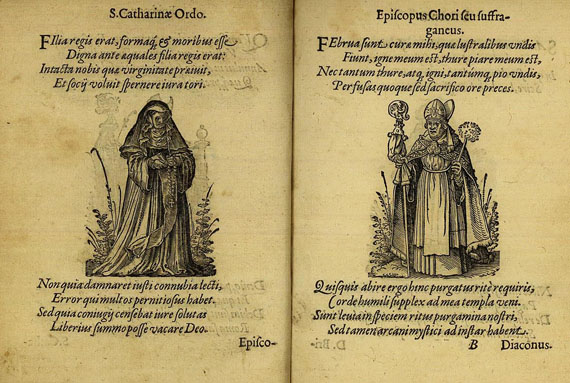 S. Catharinæ Ordo.
FIlia regis erat, formaq́, & moribus esse
Digna ante æquales filia regis erat:
Intacta nobis quæ virginitate præiuit,
Et socij voluit spernere iura tori.
Non quia damnaret iusti connubia lecti,
Error qui multos pernitiosus habet.
Sed quia coniugij censebat iure solutas
Liberius summo posse vacare Deo.
Episco-
Episcopus Chori seu suffra-
ganeus.
FEbrua sunt curæ mihi, quæ lustralibus vndis
Fiunt, igne meum est, thure piare meum est,
Nec tantum thure, atq́, igni, tantúmq́, pio vndis,
Perfusas quoque sed sacrifico ore preces.
Quisquis abire ergo hinc purgatus ritè requiris,
Corde humili supplex ad mea templa veni.
Sunt leuia in speciem ritus purgamina nostri,
Sed tamen arcani mystici ad instar habent.
B Diaconus.